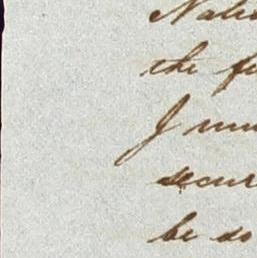 Natio
the fu
I mu
secur
be so